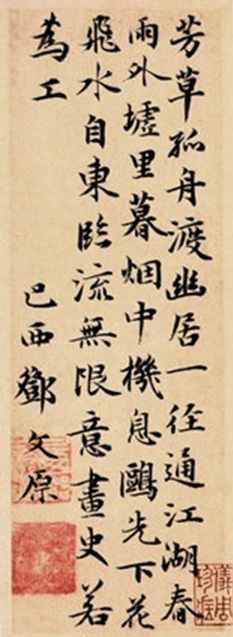 芳草孤舟渡幽居一径通江湖春
雨外墟里暮烟中機息鷗先下花
飛水自東臨流無限意畫史若
為工
巴西鄧文原